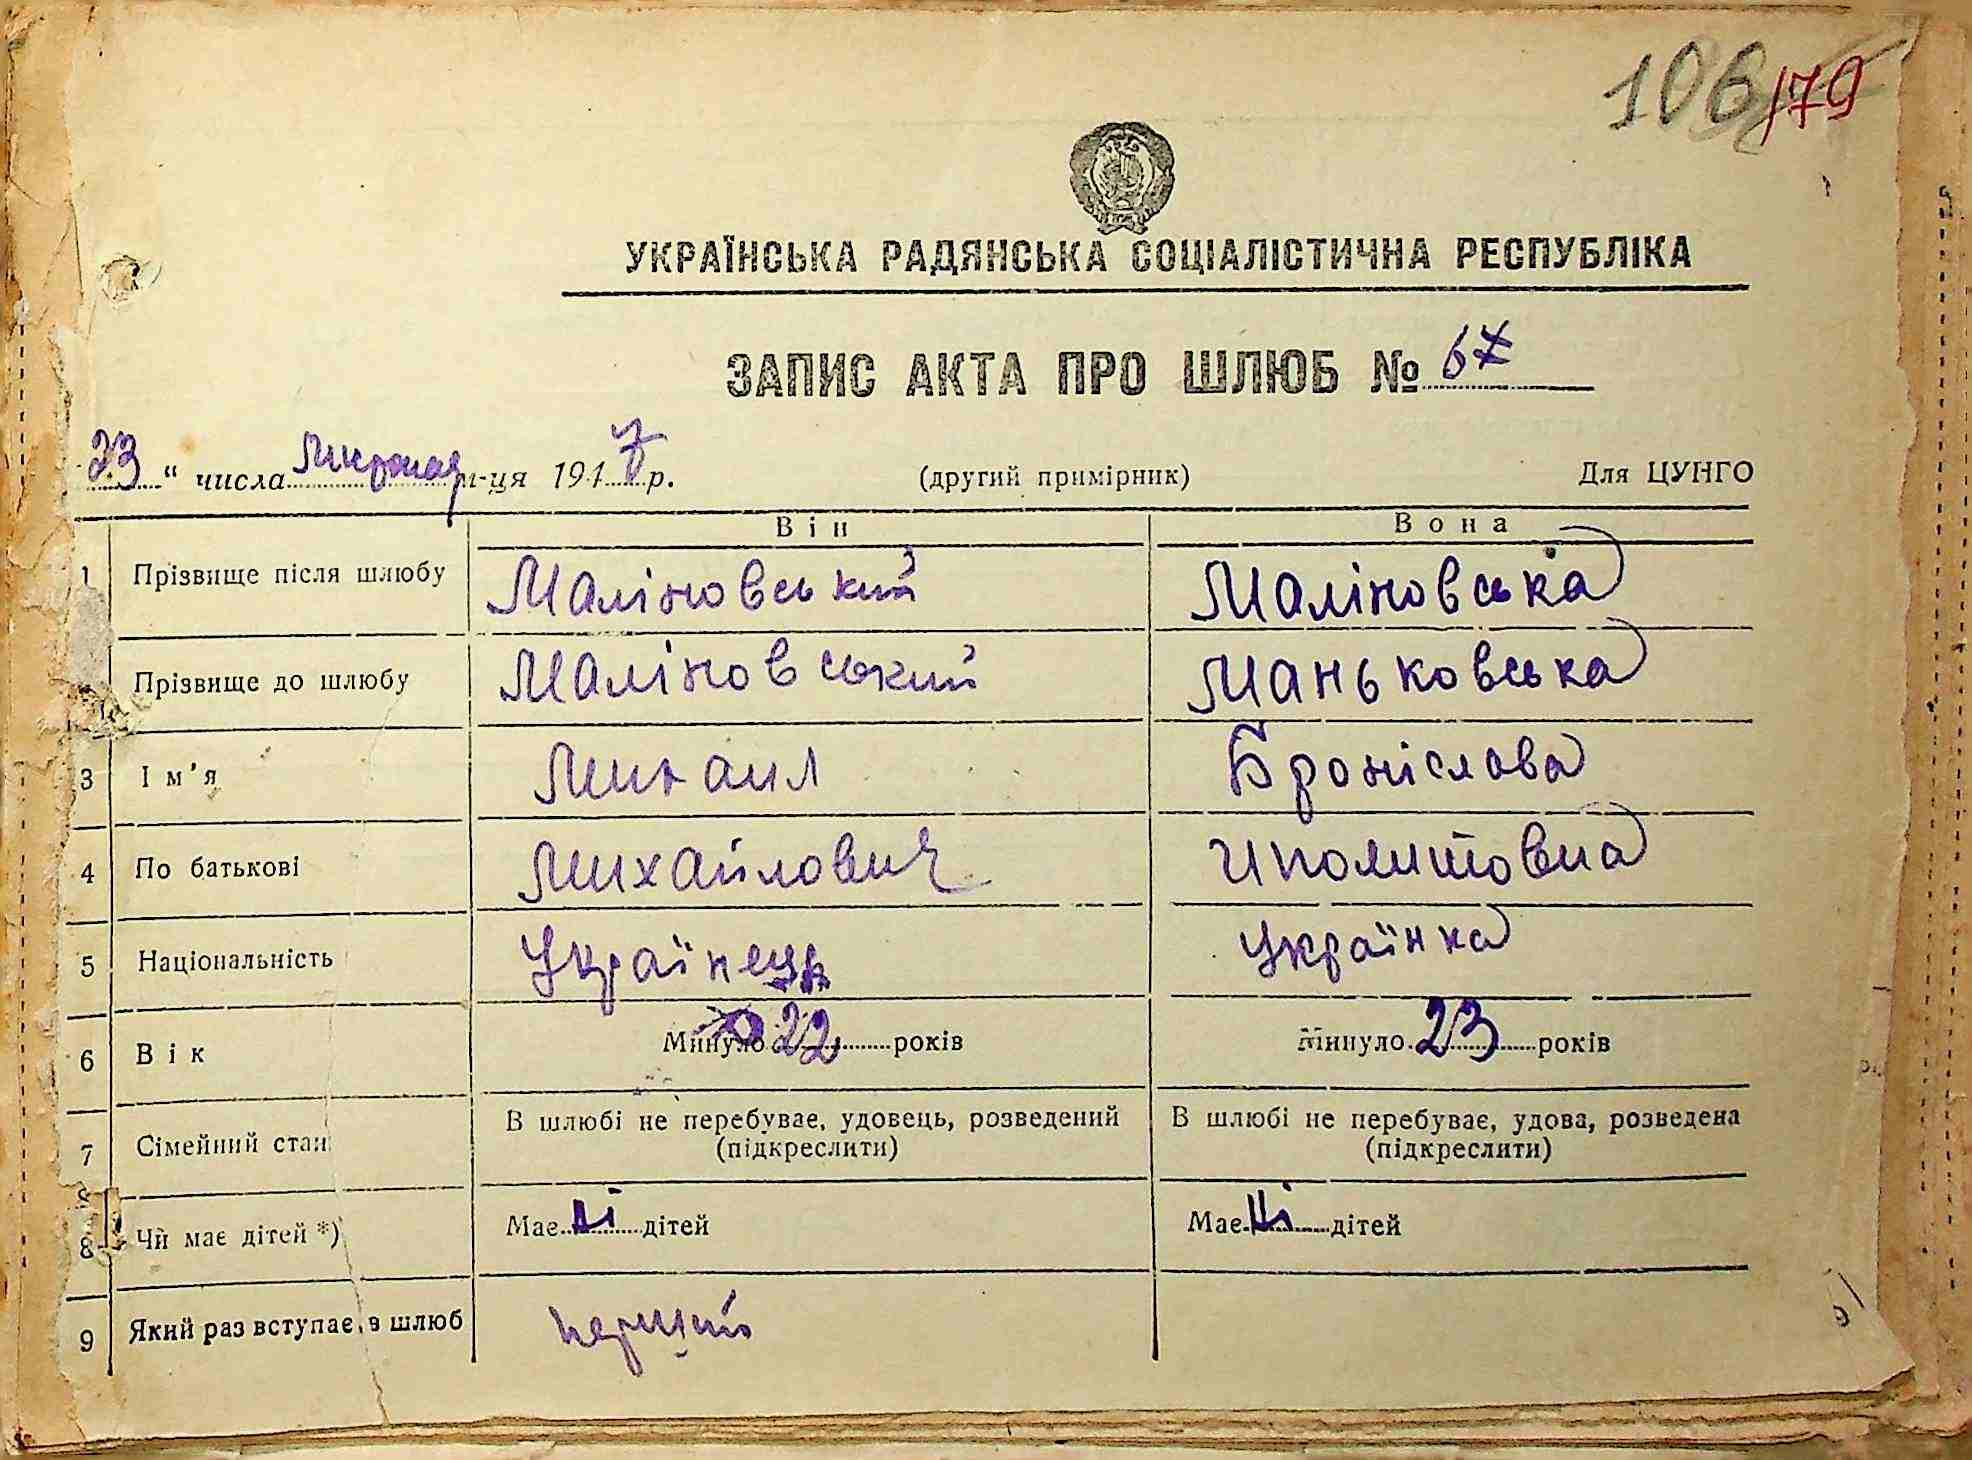 106/79
УКРАЇНСЬКА РАДЯНСЬКА СОЦІАЛІСТИЧНА РЕСПУБЛІКА
ЗАПИС АКТА ПРО ШЛЮБ № 67
23 " числа листопад м-ця 1947 р. (другий примірник) Для ЦУНГО
Він Вона
1 Прізвище після шлюбу Маліновський Маліновська
Прізвище до шлюбу Маліновський Маньковська
3 Ім'я Михаил Броніслава
4 По батькові Михайлович Иполитовна
5 Національність Українець Українка
6 Вік Минуло 22 років Минуло 23 років
7 Сімейний стан В шлюбі не перебуває, удовець, розведений (підкреслити) В шлюбі не перебуває, удова, розведена (підкреслити)
8 Чи має дітей *) Має ні дітей Має ні дітей
9 Який раз вступає в шлюб перший